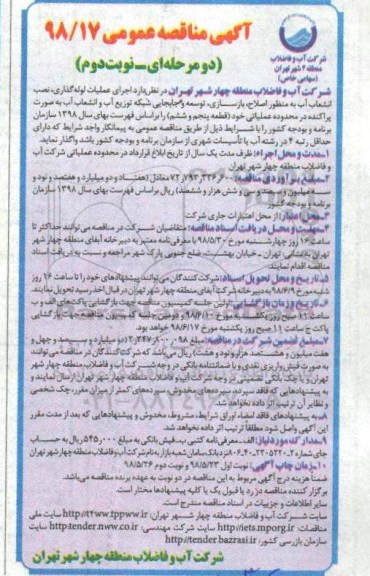 آگهی مناقصه عمومی ۹۸/۱۷
(دو مرحله‌ای ـ نوبت دوم)
شرکت آب و فاضلاب
منطقه ۴ شهر تهران
(سهامی خاص)
شرکت آب و فاضلاب منطقه چهار شهر تهران در نظر دارد اجرای عملیات لوله‌گذاری، نصب
انشعاب آب به منظور اصلاح، بازسازی، توسعه و جابجایی شبکه توزیع آب و انشعاب آب به صورت
پراکنده در محدوده عملیاتی خود (قطعه پنجم و ششم) را براساس فهرست بهای سال ۱۳۹۸ سازمان
برنامه و بودجه کشور را با شرایط ذیل از طریق مناقصه عمومی به پیمانکار واجد شرایط که دارای
حداقل رتبه ۴ در رشته آب یا تأسیسات شهری از سازمان برنامه و بودجه کشور باشد واگذار نماید.
۱ـ مدت و محل اجراء: ظرف مدت یک سال از تاریخ ابلاغ قرارداد در محدوده عملیاتی شرکت آب
و فاضلاب منطقه چهار شهر تهران
۲ـ مبلغ برآوردی مناقصه: ۷۲,۷۹۳,۳۳۶,۶۰۰ معادل (هفتاد و دو میلیارد و هفتصد و نود و
سه میلیون و سیصد و سی و شش هزار و ششصد) ریال براساس فهرست بهای سال ۱۳۹۸ سازمان
برنامه و بودجه کشور
۳ـ محل اعتبار: از محل اعتبارات جاری شرکت
۴ـ مهلت و محل دریافت اسناد مناقصه: متقاضیان شرکت در مناقصه می‌توانند حداکثر تا
ساعت ۱۶ روز چهارشنبه مورخ ۹۸/۵/۳۰ با معرفی‌نامه معتبر به دبیرخانه آبفای منطقه چهار شهر
تهران به نشانی: تهران ـ خیابان بهشت، ضلع جنوبی پارک شهر مراجعه و نسبت به دریافت اسناد
مناقصه اقدام نمایند.
۵ـ تاریخ و محل تحویل اسناد: شرکت کنندگان می‌توانند پیشنهادهای خود را تا ساعت ۱۶ روز
شنبه مورخ ۹۸/۶/۹ به دبیرخانه شرکت آبفای منطقه چهار شهر تهران در قبال اخذ رسید تحویل نمایند.
۶ـ تاریخ و زمان بازگشایی: اولین جلسه کمیسیون مناقصه جهت بازگشایی پاکت‌های الف و ب
ساعت ۱۱ صبح روز یکشنبه مورخ ۹۸/۶/۱۰ و دومین جلسه کمیسیون مناقصه جهت بازگشایی
پاکت ج ساعت ۱۱ صبح روز یکشنبه مورخ ۹۸/۶/۱۷ خواهد بود.
۷ـ مبلغ تضمین شرکت در مناقصه: مبلغ (دو میلیارد و چهارصد و چهل و
هفت میلیون و هشتصد هزار و نود و هشت) ریال می‌باشد که شرکت‌کنندگان در مناقصه می‌توانند
به صورت فیش واریزی نقدی و یا ضمانتنامه بانکی در وجه شرکت آب و فاضلاب منطقه چهار شهر
تهران و یا چک بانکی تضمینی در وجه شرکت آب و فاضلاب منطقه چهار شهر تهران ارسال نمایند و
به پیشنهادهایی که فاقد سپرده، سپرده‌های مخدوش، سپرده‌های کمتر از میزان مقرر، چک شخصی
و نظایر آن ترتیب اثر داده نخواهد شد.
به پیشنهادهای فاقد امضاء اوراق شرایط، مشروط، مخدوش و پیشنهادهایی که بعد از مدت مقرر
این آگهی واصل شود مطلقاً ترتیب اثر داده نخواهد شد.
۹ـ مدارک مورد نیاز: الف ـ معرفی‌نامه کتبی ب ـ فیش بانکی به مبلغ ۵۴۵,۰۰۰ ریال به حساب
نزد بانک سامان شعبه بازار به نام شرکت آب و فاضلاب منطقه چهار شهر تهران
۱۰ـ زمان چاپ آگهی: نوبت اول ۹۸/۵/۲۳ و نوبت دوم ۹۸/۵/۲۶
ضمناً هزینه درج آگهی مربوط به این مناقصه در دو نوبت به عهده برنده مناقصه می‌باشد.
برگزار کننده مناقصه در رد یا قبول یک یا کلیه پیشنهادها مختار است.
سایر اطلاعات و جزییات در اسناد مناقصه مندرج است.
سایت شرکت آب و فاضلاب منطقه چهار شهر تهران: http://t4ww.tppww.ir سایت ملی
مناقصات: http://iets.mporg.ir سایت شرکت مهندسی: http:tender.nww.co.ir سایت
سازمان بازرسی کشور: http://tender.bazrasi.ir
شرکت آب و فاضلاب منطقه چهار شهر تهران